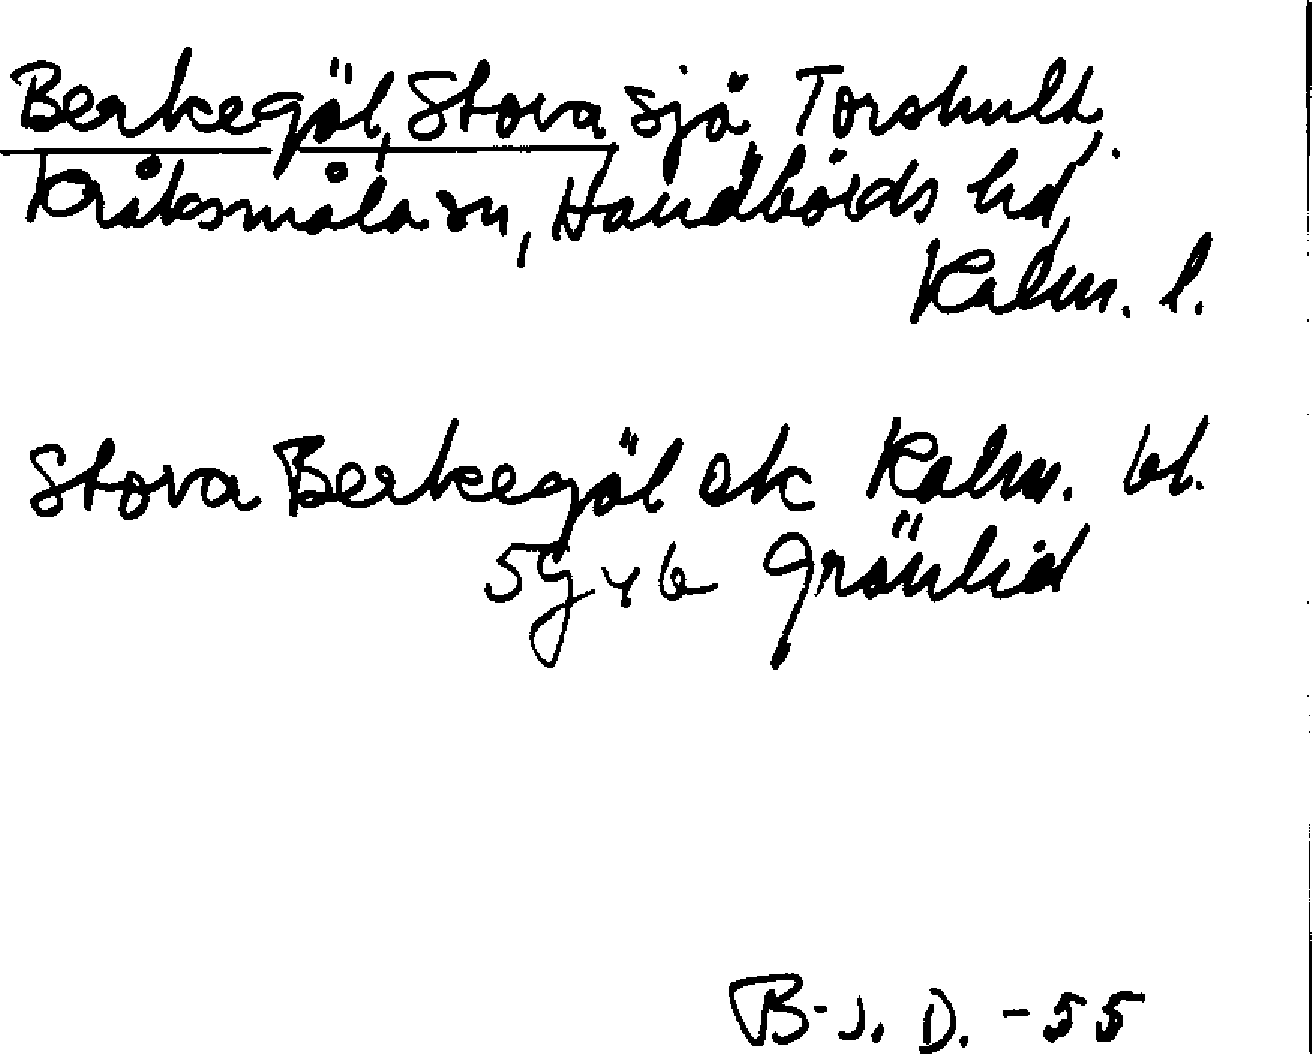 Berkegöl, Stora sjö Torshult,
Kråksmåla sn, Handbörds hd,
Kalm. l.
Stora Berkegöl ek Kalm. bl.
5g y b Grönlid
B-J. D. -55